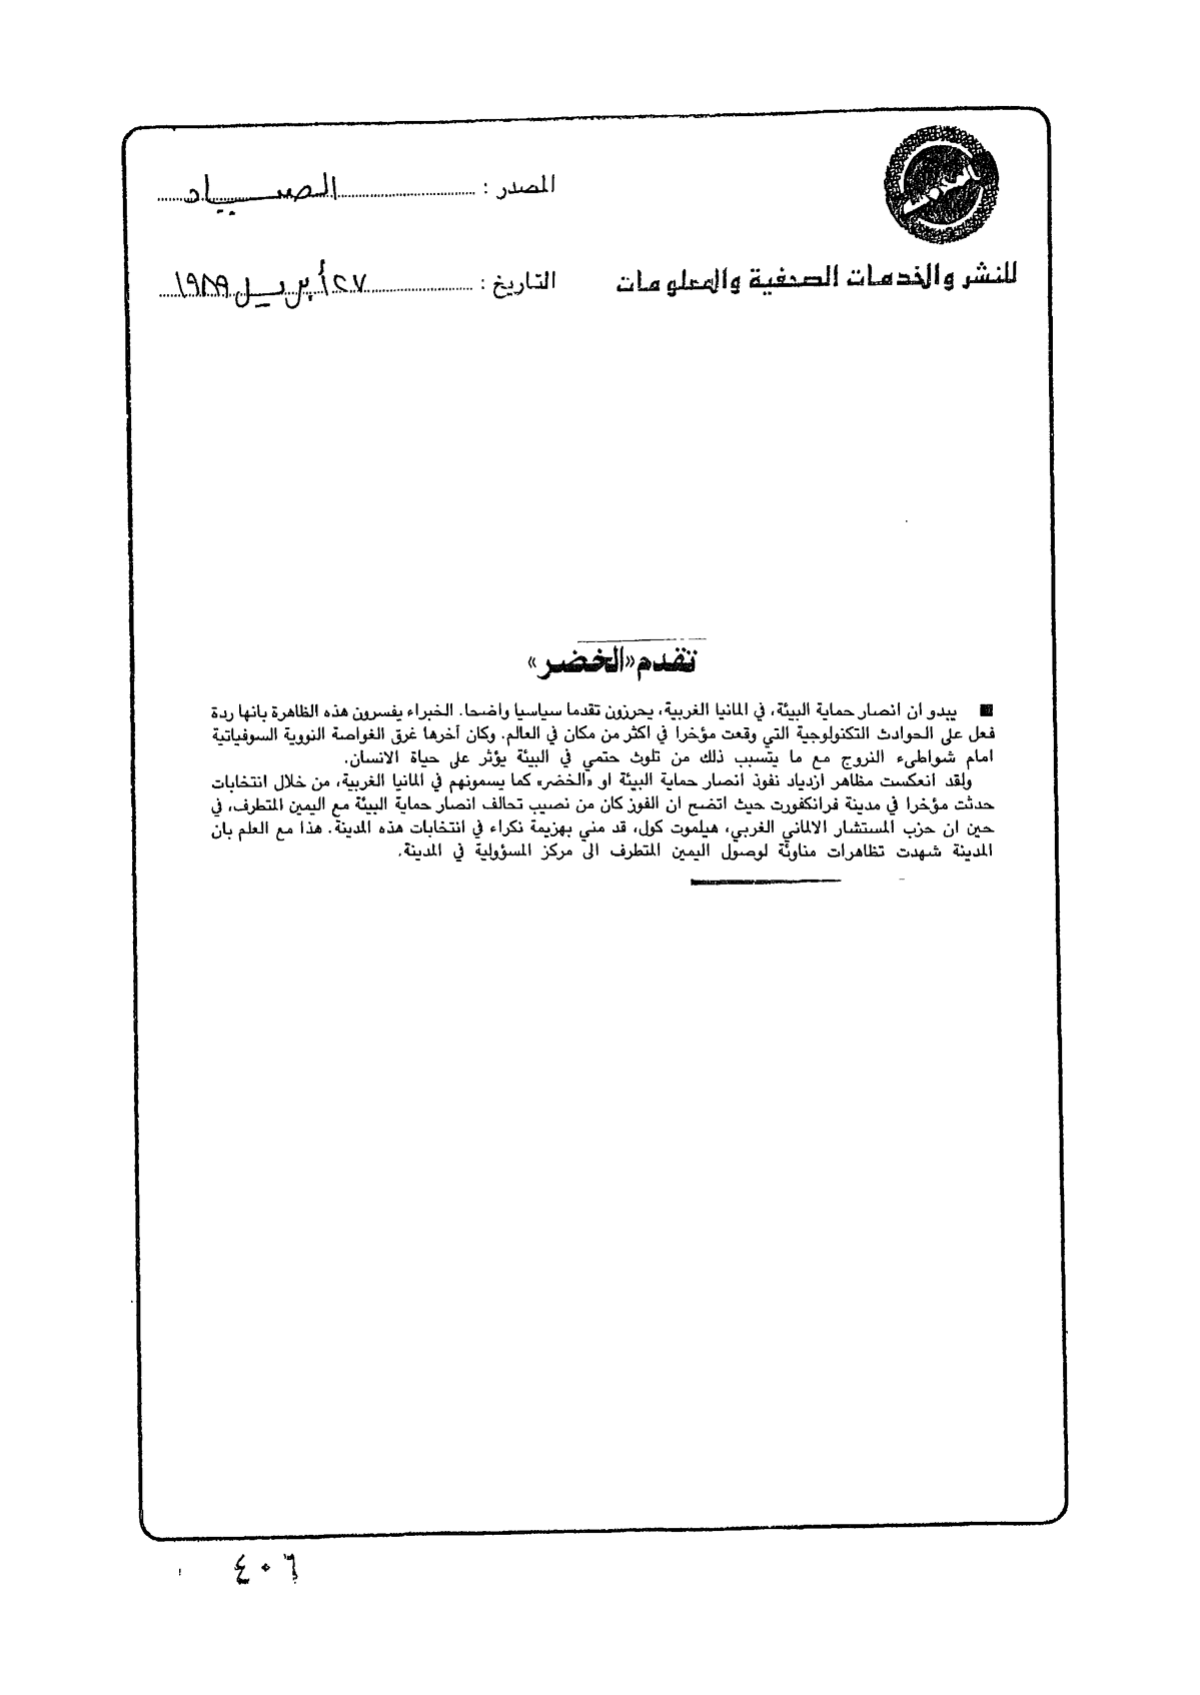 المصدر : الصياد
للنشر والخدمات الصحفية والمعلومات
التاريخ : ٢٧ أبريل ١٩٨٩
تقدم «الخضر»
■ يبدو ان انصار حماية البيئة، في المانيا الغربية، يحرزون تقدما سياسيا واضحا. الخبراء يفسرون هذه الظاهرة بانها ردة
فعل على الحوادث التكنولوجية التي وقعت مؤخرا في اكثر من مكان في العالم. وكان آخرها غرق الغواصة النووية السوفياتية
امام شواطىء النروج مع ما يتسبب ذلك من تلوث حتمي في البيئة يؤثر على حياة الانسان.
ولقد انعكست مظاهر ازدياد نفوذ انصار حماية البيئة او «الخضر» كما يسمونهم في المانيا الغربية، من خلال انتخابات
حدثت مؤخرا في مدينة فرانكفورت حيث اتضح ان الفوز كان من نصيب تحالف انصار حماية البيئة مع اليمين المتطرف، في
حين ان حزب المستشار الالماني الغربي، هيلموت كول، قد مني بهزيمة نكراء في انتخابات هذه المدينة. هذا مع العلم بان
المدينة شهدت تظاهرات مناوئة لوصول اليمين المتطرف الى مركز المسؤولية في المدينة.
٤٠٦